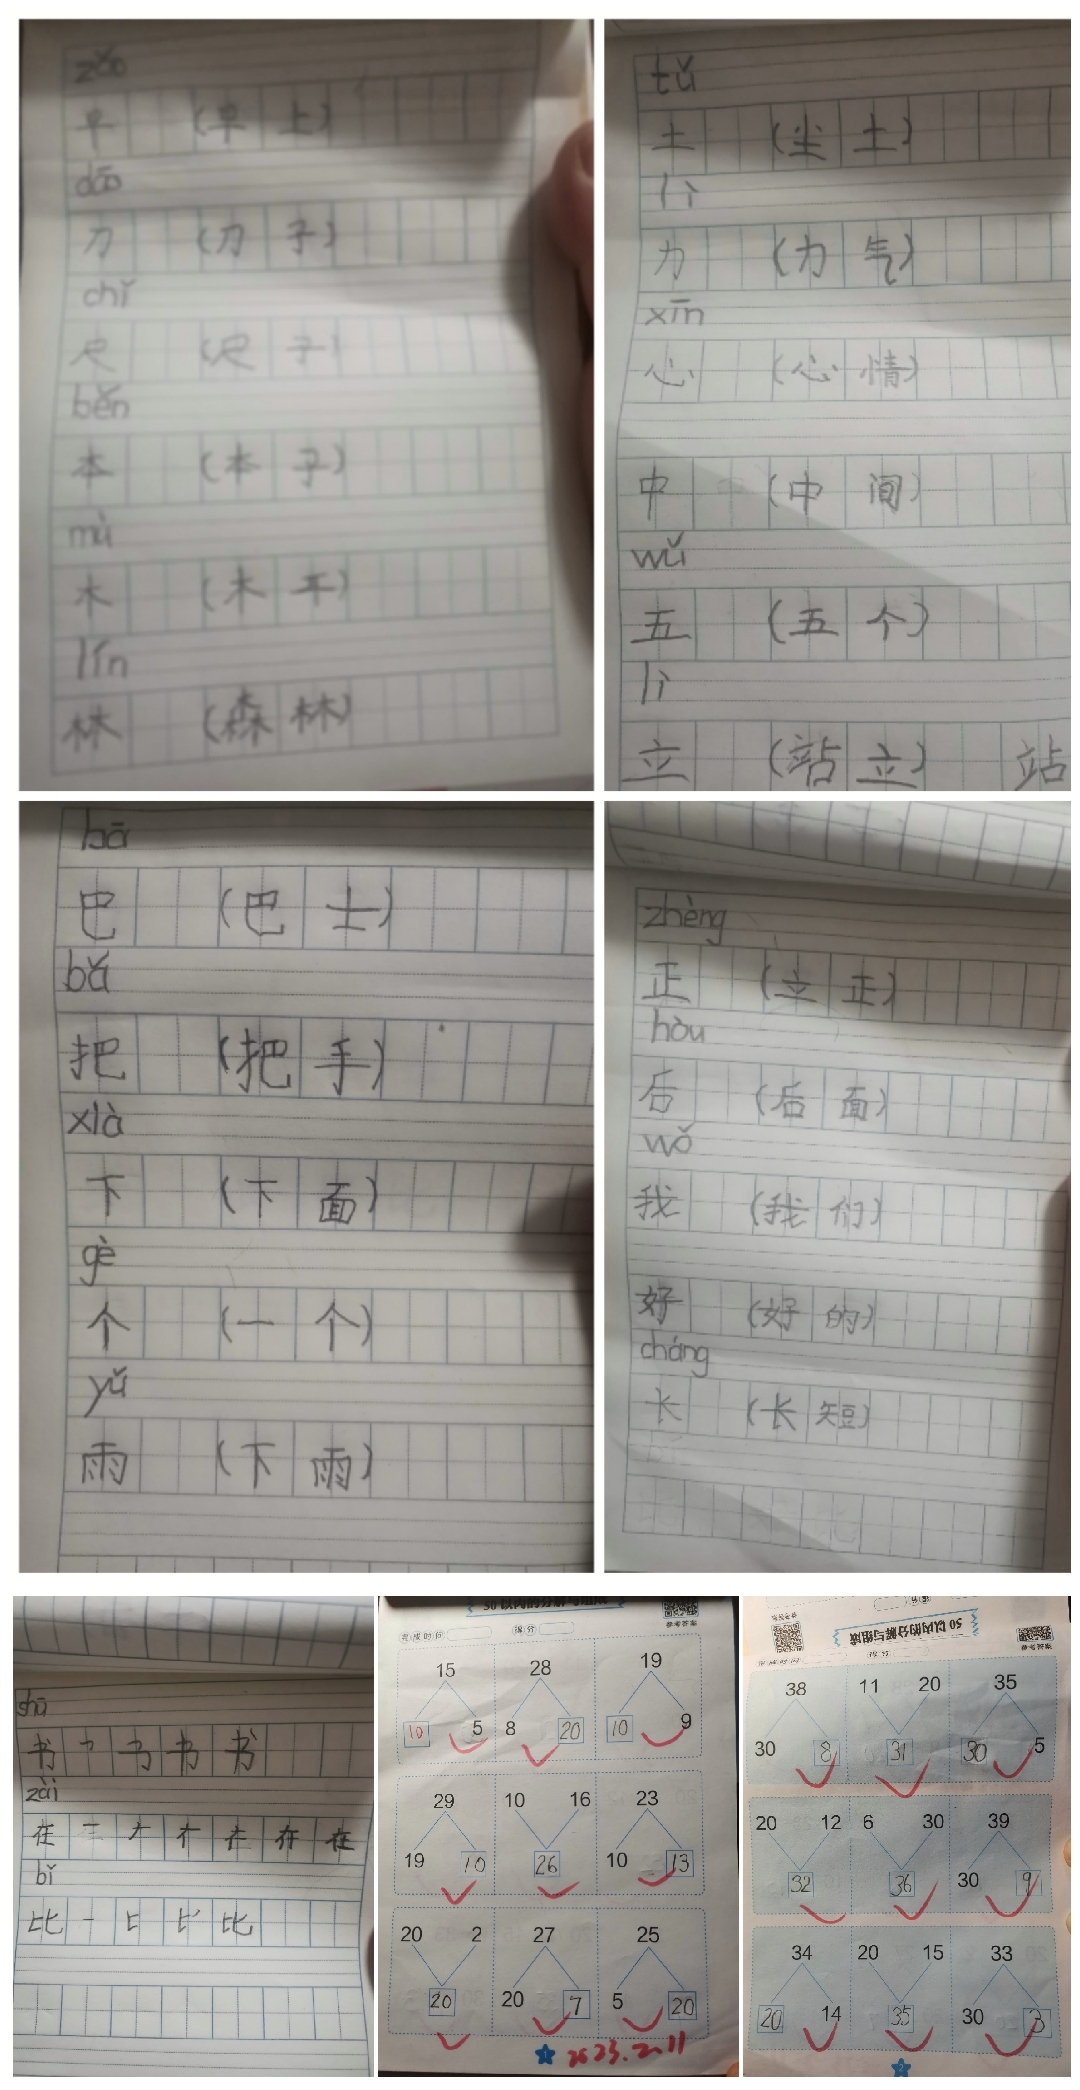 zǎo
早 (早 上)
dāo
刀 (刀 子)
chǐ
尺 (尺 子)
běn
本 (本 子)
mù
木 (木 干)
lín
林 (森 林)
tǔ
土 (尘 土)
lì
力 (力 气)
xīn
心 (心 情)
中 (中 间)
wǔ
五 (五 个)
lì
立 (站 立) 站
bā
巴 (巴 士)
bǎ
把 (把 手)
xià
下 (下 面)
gè
个 (一 个)
yǔ
雨 (下 雨)
zhèng
正 (立 正)
hòu
后 (后 面)
wǒ
我 (我 们)
好 (好 的)
cháng
长 (长 短)
shū
书
zài
在
bǐ
比 一 比
50以内的分解与组成
完成时间 得分
15 28 19
10 5 8 20 10 9
29 10 16 23
19 10 26 10 13
20 2 27 25
20 20 7 5 20
1 2023.2.11
50以内的分解与组成
38 11 20 35
30 8 31 30 5
20 12 6 30 39
32 36 30 9
34 20 15 33
20 14 35 30 3
2